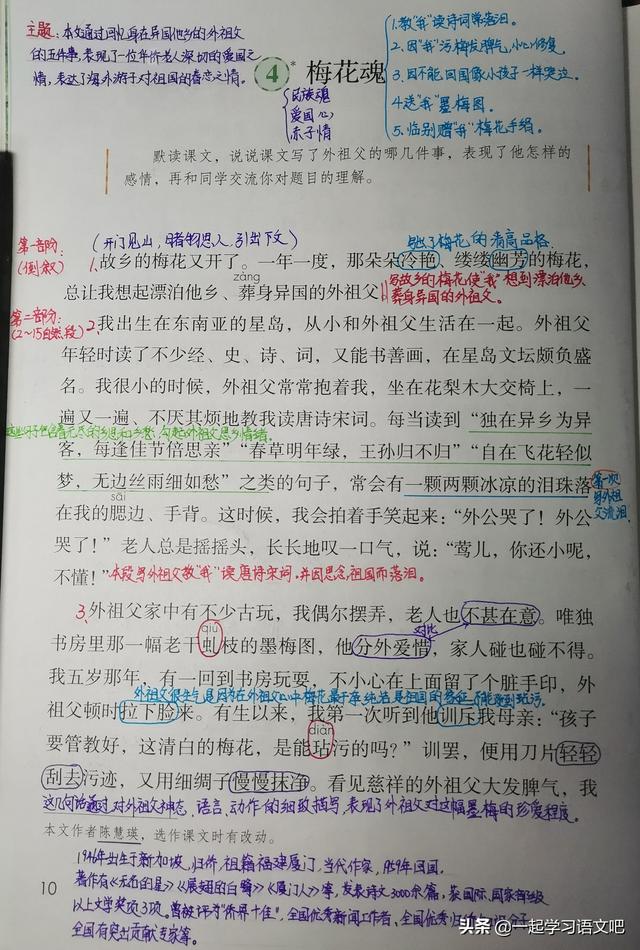 主题：本文通过回忆身在异国他乡的外祖父
的五件事，表现了一位年价老人深切的爱国之
情，表达了海外游子对祖国的眷恋之情。
1.教“我”读诗词常落泪。
2.因“我”污梅发脾气，小心修复。
3.因不能回国像小孩子一样哭泣。
4.送“我”墨梅图。
5.临别赠“我”梅花手绢。
4* 梅花魂
民族魂
爱国心
赤子情
默读课文，说说课文写了外祖父的哪几件事，表现了他怎样的
感情，再和同学交流你对题目的理解。
第一部分：
（倒叙）
（开门见山，睹物思人，引出下文）
写出了梅花的清高品格。
1.故乡的梅花又开了。一年一度，那朵朵冷艳、缕缕幽芳的梅花，
zàng
总让我想起漂泊他乡、葬身异国的外祖父。
写故乡的梅花使“我”想到漂泊他乡、
葬身异国的外祖父。
第二部分：
（2～15自然段）
2.我出生在东南亚的星岛，从小和外祖父生活在一起。外祖父
年轻时读了不少经、史、诗、词，又能书善画，在星岛文坛颇负盛
名。我很小的时候，外祖父常常抱着我，坐在花梨木大交椅上，一
遍又一遍、不厌其烦地教我读唐诗宋词。每当读到“独在异乡为异
勾起外祖父思乡情绪。
客，每逢佳节倍思亲”“春草明年绿，王孙归不归”“自在飞花轻似
梦，无边丝雨细如愁”之类的句子，常会有一颗两颗冰凉的泪珠落
第一次
写外祖父
流泪
sāi
在我的腮边、手背。这时候，我会拍着手笑起来：“外公哭了！外公
哭了！”老人总是摇摇头，长长地叹一口气，说：“莺儿，你还小呢，
不懂！”
本段写外祖父教“我”读唐诗宋词，并因思念祖国而落泪。
3.外祖父家中有不少古玩，我偶尔摆弄，老人也不甚在意。唯独
对比
qiú
书房里那一幅老干虬枝的墨梅图，他分外爱惜，家人碰也碰不得。
我五岁那年，有一回到书房玩耍，不小心在上面留了个脏手印，外
外祖父很生气是因为在外祖父心中梅花最干净纯洁是祖国的象征，不能受到玷污。
祖父顿时拉下脸来。有生以来，我第一次听到他训斥我母亲：“孩子
diàn
要管教好，这清白的梅花，是能玷污的吗？”训罢，便用刀片轻轻
刮去污迹，又用细绸子慢慢抹净。看见慈祥的外祖父大发脾气，我
这几句话通过对外祖父神态、语言、动作的细致描写，表现了外祖父对这幅墨梅的珍爱程度。
本文作者陈慧瑛，选作课文时有改动。
1946年出生于新加坡，归侨，祖籍福建厦门，当代作家，1959年回国。
著作有《无名的星》《展翅的白鹭》《厦门人》等，发表诗文3000余篇，获国际、国家省级
以上文学奖项3项。曾被评为“侨界十佳”、全国优秀新闻工作者、全国优秀归侨知识分子、
全国有突出贡献专家等。
10
头条 @一起学习语文吧